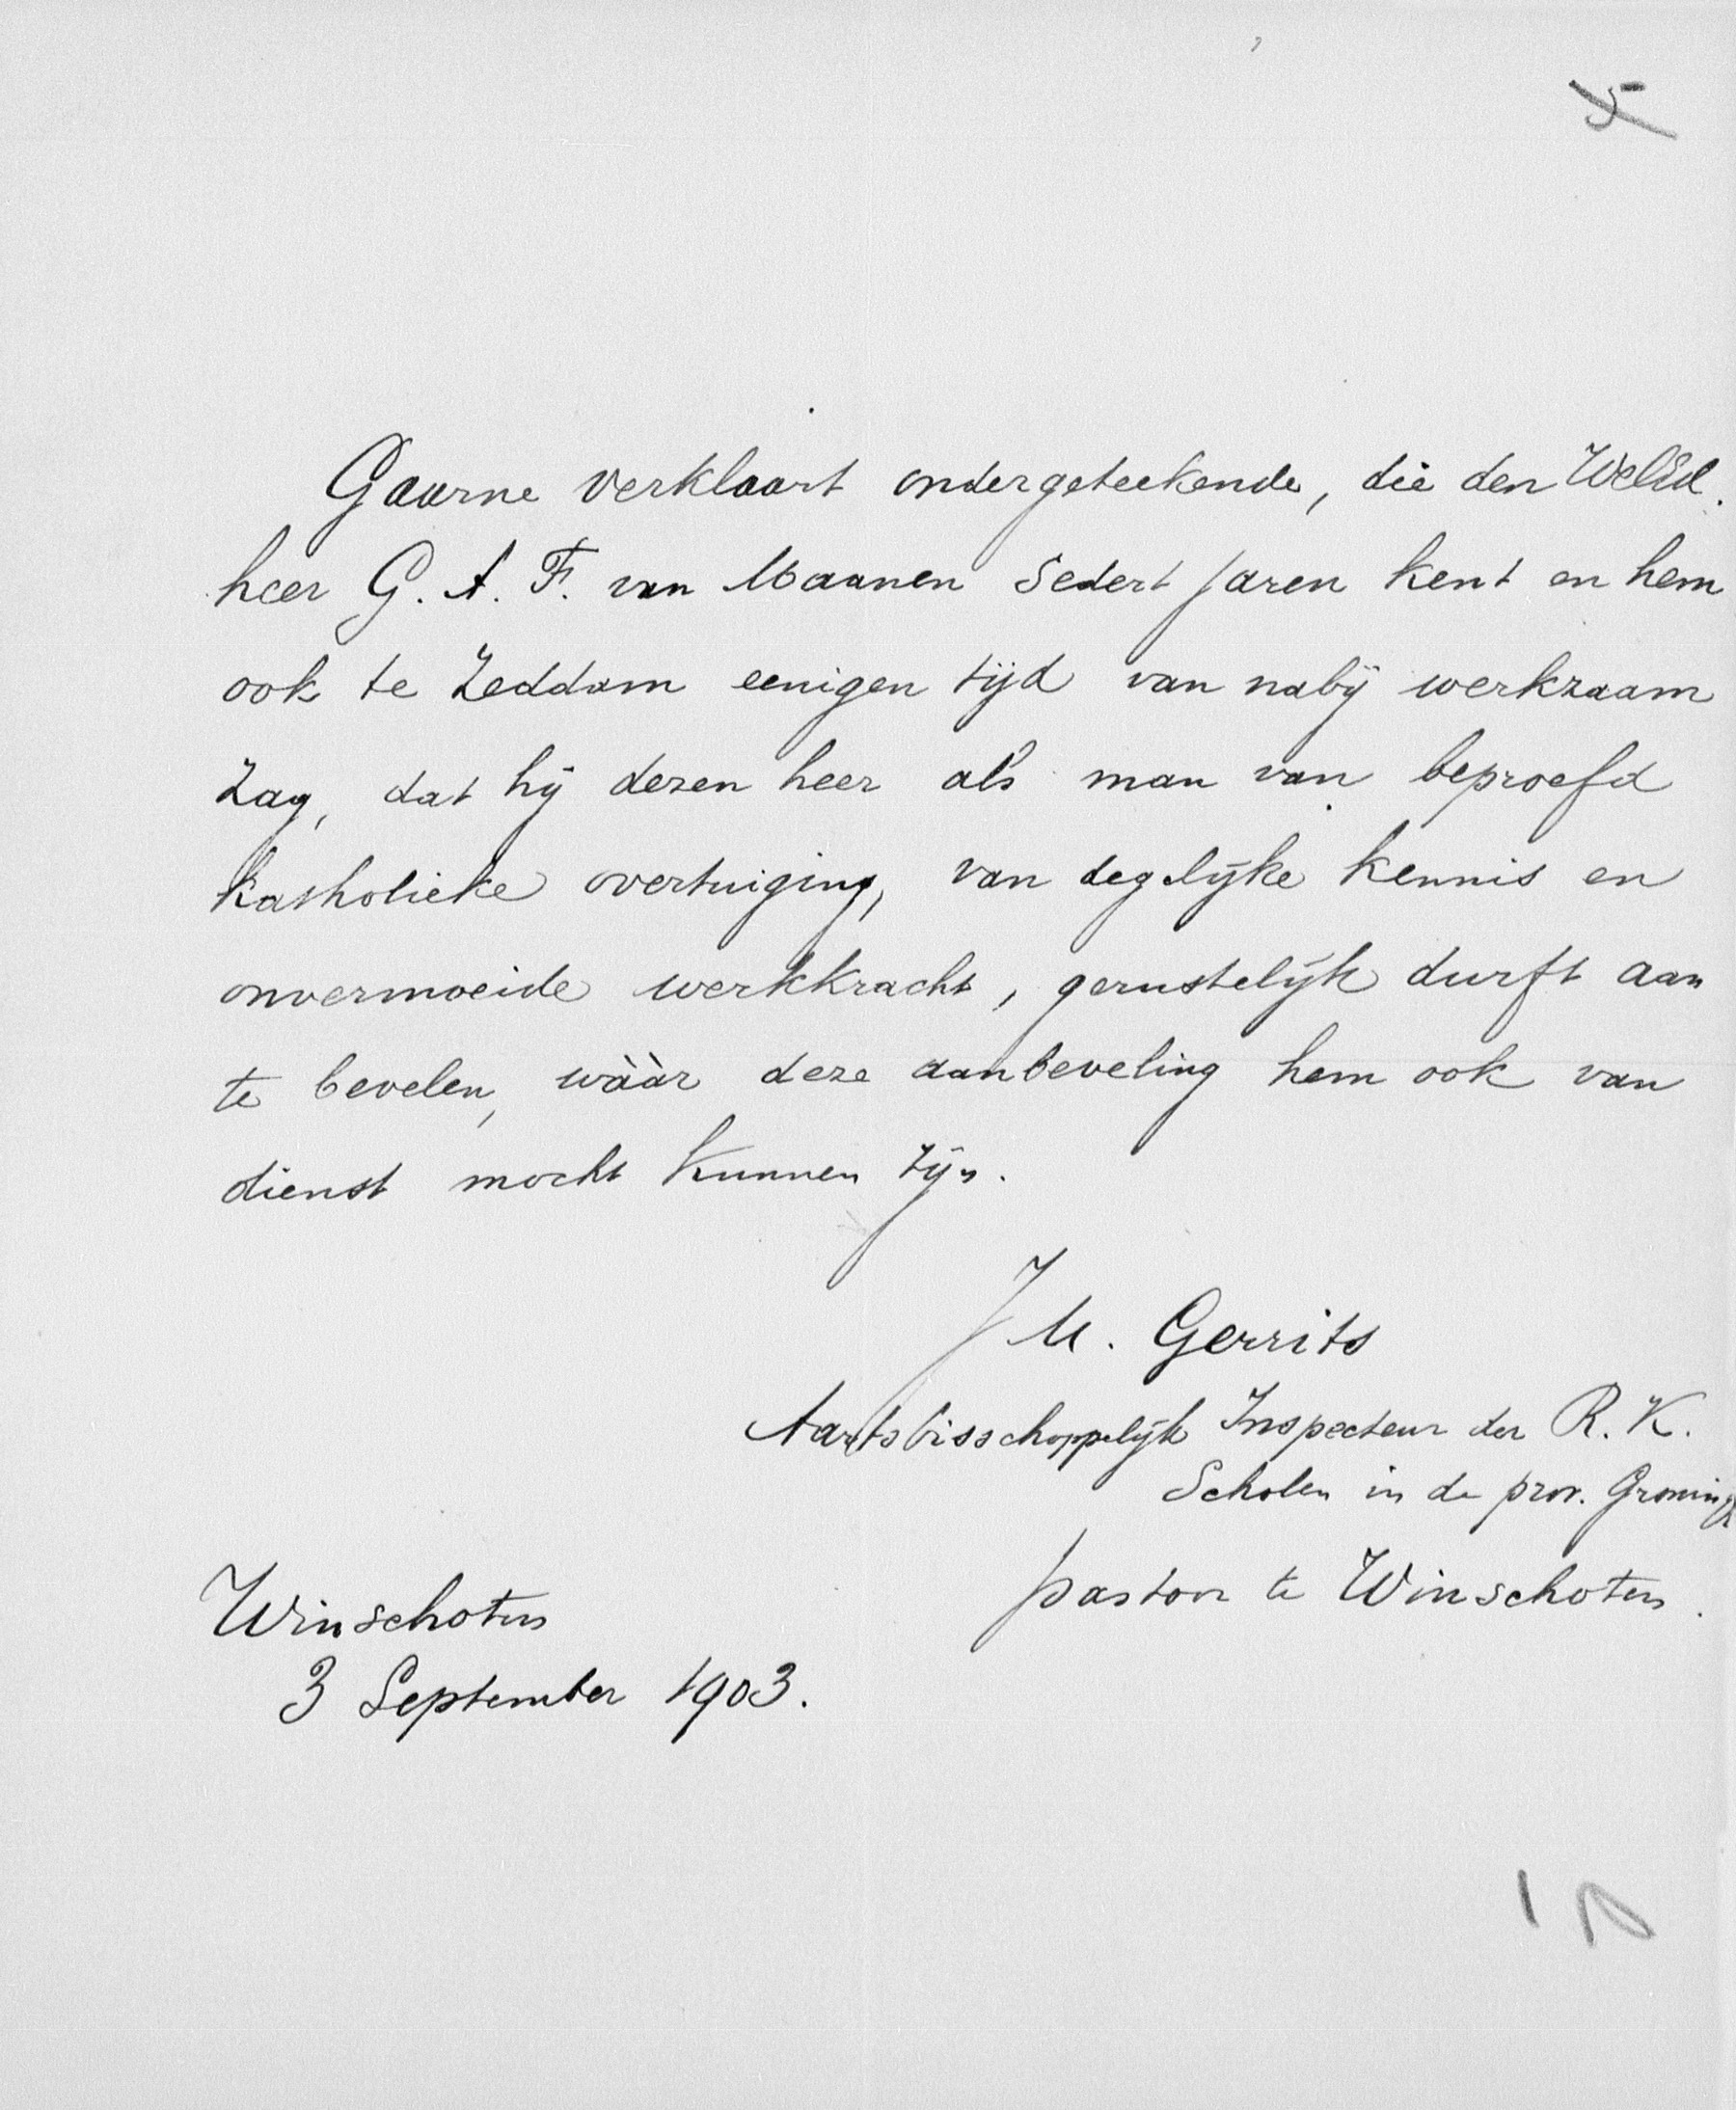 5
Gaarne verklaart ondergeteekende, die den WelEd.
heer G. A. F. van Maanen sedert jaren kent en hem
ook te Zeddam eenigen tijd van nabij werkzaam
zag, dat hij dezen heer als man van beproefd
katholieke overtuiging, van degelijke kennis en
onvermoeide werkkracht, gerustelijk durft aan
te bevelen, wààr deze aanbeveling hem ook van
dienst mocht kunnen zijn.
J M. Gerrits
Aartsbisschoppelijk Inspecteur der R. K.
Scholen in de prov. Groning
pastoor te Winschoten.
Winschoten
3 September 1903.